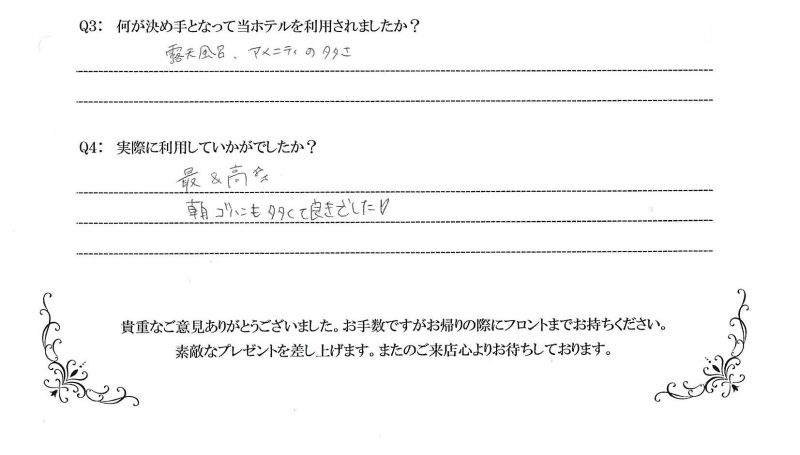 Q3： 何が決め手となって当ホテルを利用されましたか？
露天風呂、アメニティの多さ
Q4： 実際に利用していかがでしたか？
最&高☆
朝ゴハンも多くて良きでした♡
貴重なご意見ありがとうございました。お手数ですがお帰りの際にフロントまでお持ちください。
素敵なプレゼントを差し上げます。またのご来店心よりお待ちしております。